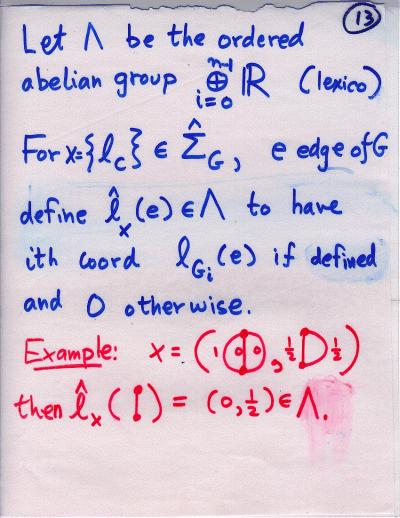 13
Let Λ be the ordered
abelian group ⊕_{i=0}^{n-1} ℝ (lexico)
For x={l_c} ∈ Σ̂_G, e edge of G
define l̂_x(e) ∈ Λ to have
ith coord l_{G_i}(e) if defined
and 0 otherwise.
Example: x = (1 0 0, ½ ½)
then l̂_x( ) = (0, ½) ∈ Λ.